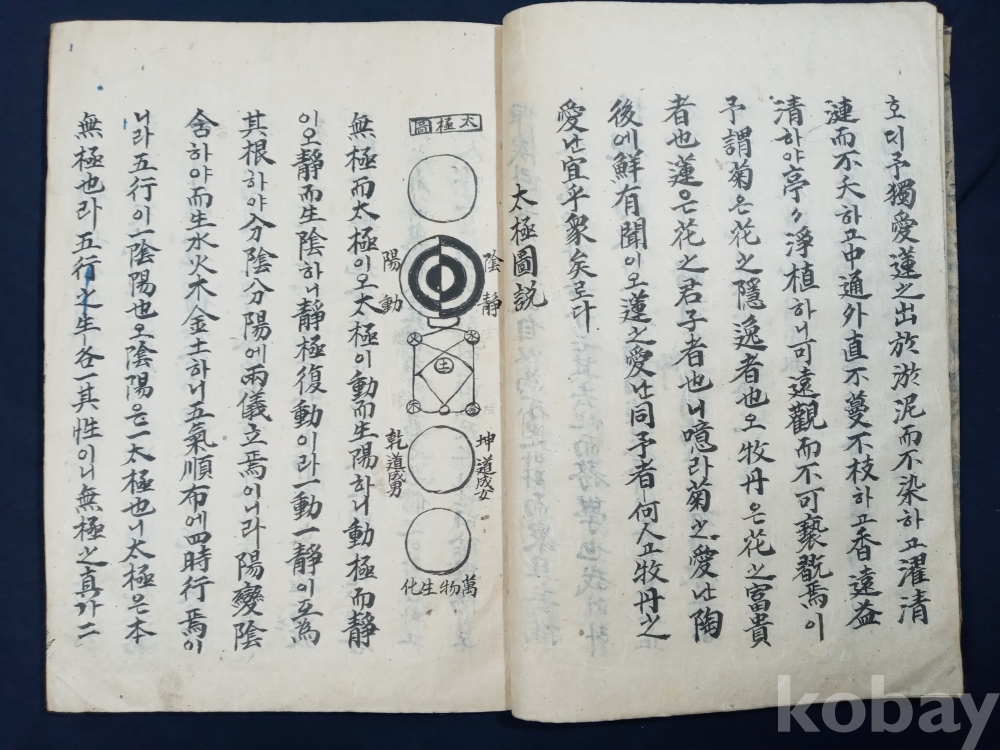 호디予獨愛蓮之出於淤泥而不染하고濯清
漣而不夭하고中通外直不蔓不枝하고香遠益
清하야亭々淨植하니可遠觀而不可褻翫焉이
予謂菊은花之隱逸者也오牧丹은花之富貴
者也蓮은花之君子者也니噫라菊之愛난陶
後에鮮有聞이오蓮之愛난同予者何人고牧丹之
愛난宜乎衆矣로다
太極圖說
太極圖
陰靜
陽動
火
水
土
木
金
坤道成女
乾道成男
萬物生化
無極而太極이오太極이動而生陽하니動極而靜
이오靜而生陰하니靜極復動이라一動一靜이互為
其根하야分陰分陽에兩儀立焉이니라陽變陰
舍하야而生水火木金土하니五氣順布에四時行焉이
니라五行이一陰陽也오陰陽은一太極也니太極은本
無極也라五行之生各一其性이니無極之真가二
kobay